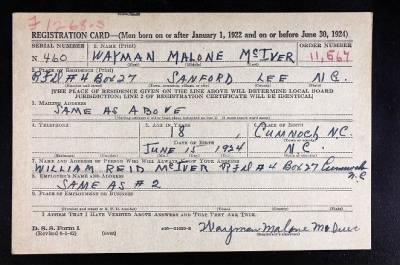 REGISTRATION CARD—(Men born on or after January 1, 1922 and on or before June 30, 1924)
SERIAL NUMBER 1. NAME (Print) ORDER NUMBER
N. 460 WAYMAN MALONE McIVER 11,667
2. PLACE OF RESIDENCE (Print)
RFD #4 BOX 27 SANFORD LEE N.C.
[THE PLACE OF RESIDENCE GIVEN ON THE LINE ABOVE WILL DETERMINE LOCAL BOARD
JURISDICTION; LINE 2 OF REGISTRATION CERTIFICATE WILL BE IDENTICAL]
3. MAILING ADDRESS
SAME AS ABOVE
4. TELEPHONE 5. AGE IN YEARS 6. PLACE OF BIRTH
18 CUMNOCK N.C.
DATE OF BIRTH
JUNE 15 1924 N.C.
7. NAME AND ADDRESS OF PERSON WHO WILL ALWAYS KNOW YOUR ADDRESS
WILLIAM REID McIVER RFD #4 BOX 27 Cumnock N.C.
8. EMPLOYER'S NAME AND ADDRESS
SAME AS #2
9. PLACE OF EMPLOYMENT OR BUSINESS
I AFFIRM THAT I HAVE VERIFIED ABOVE ANSWERS AND THAT THEY ARE TRUE.
D. S. S. Form 1
(Revised 6-1-42) (over) Wayman Malone McIver